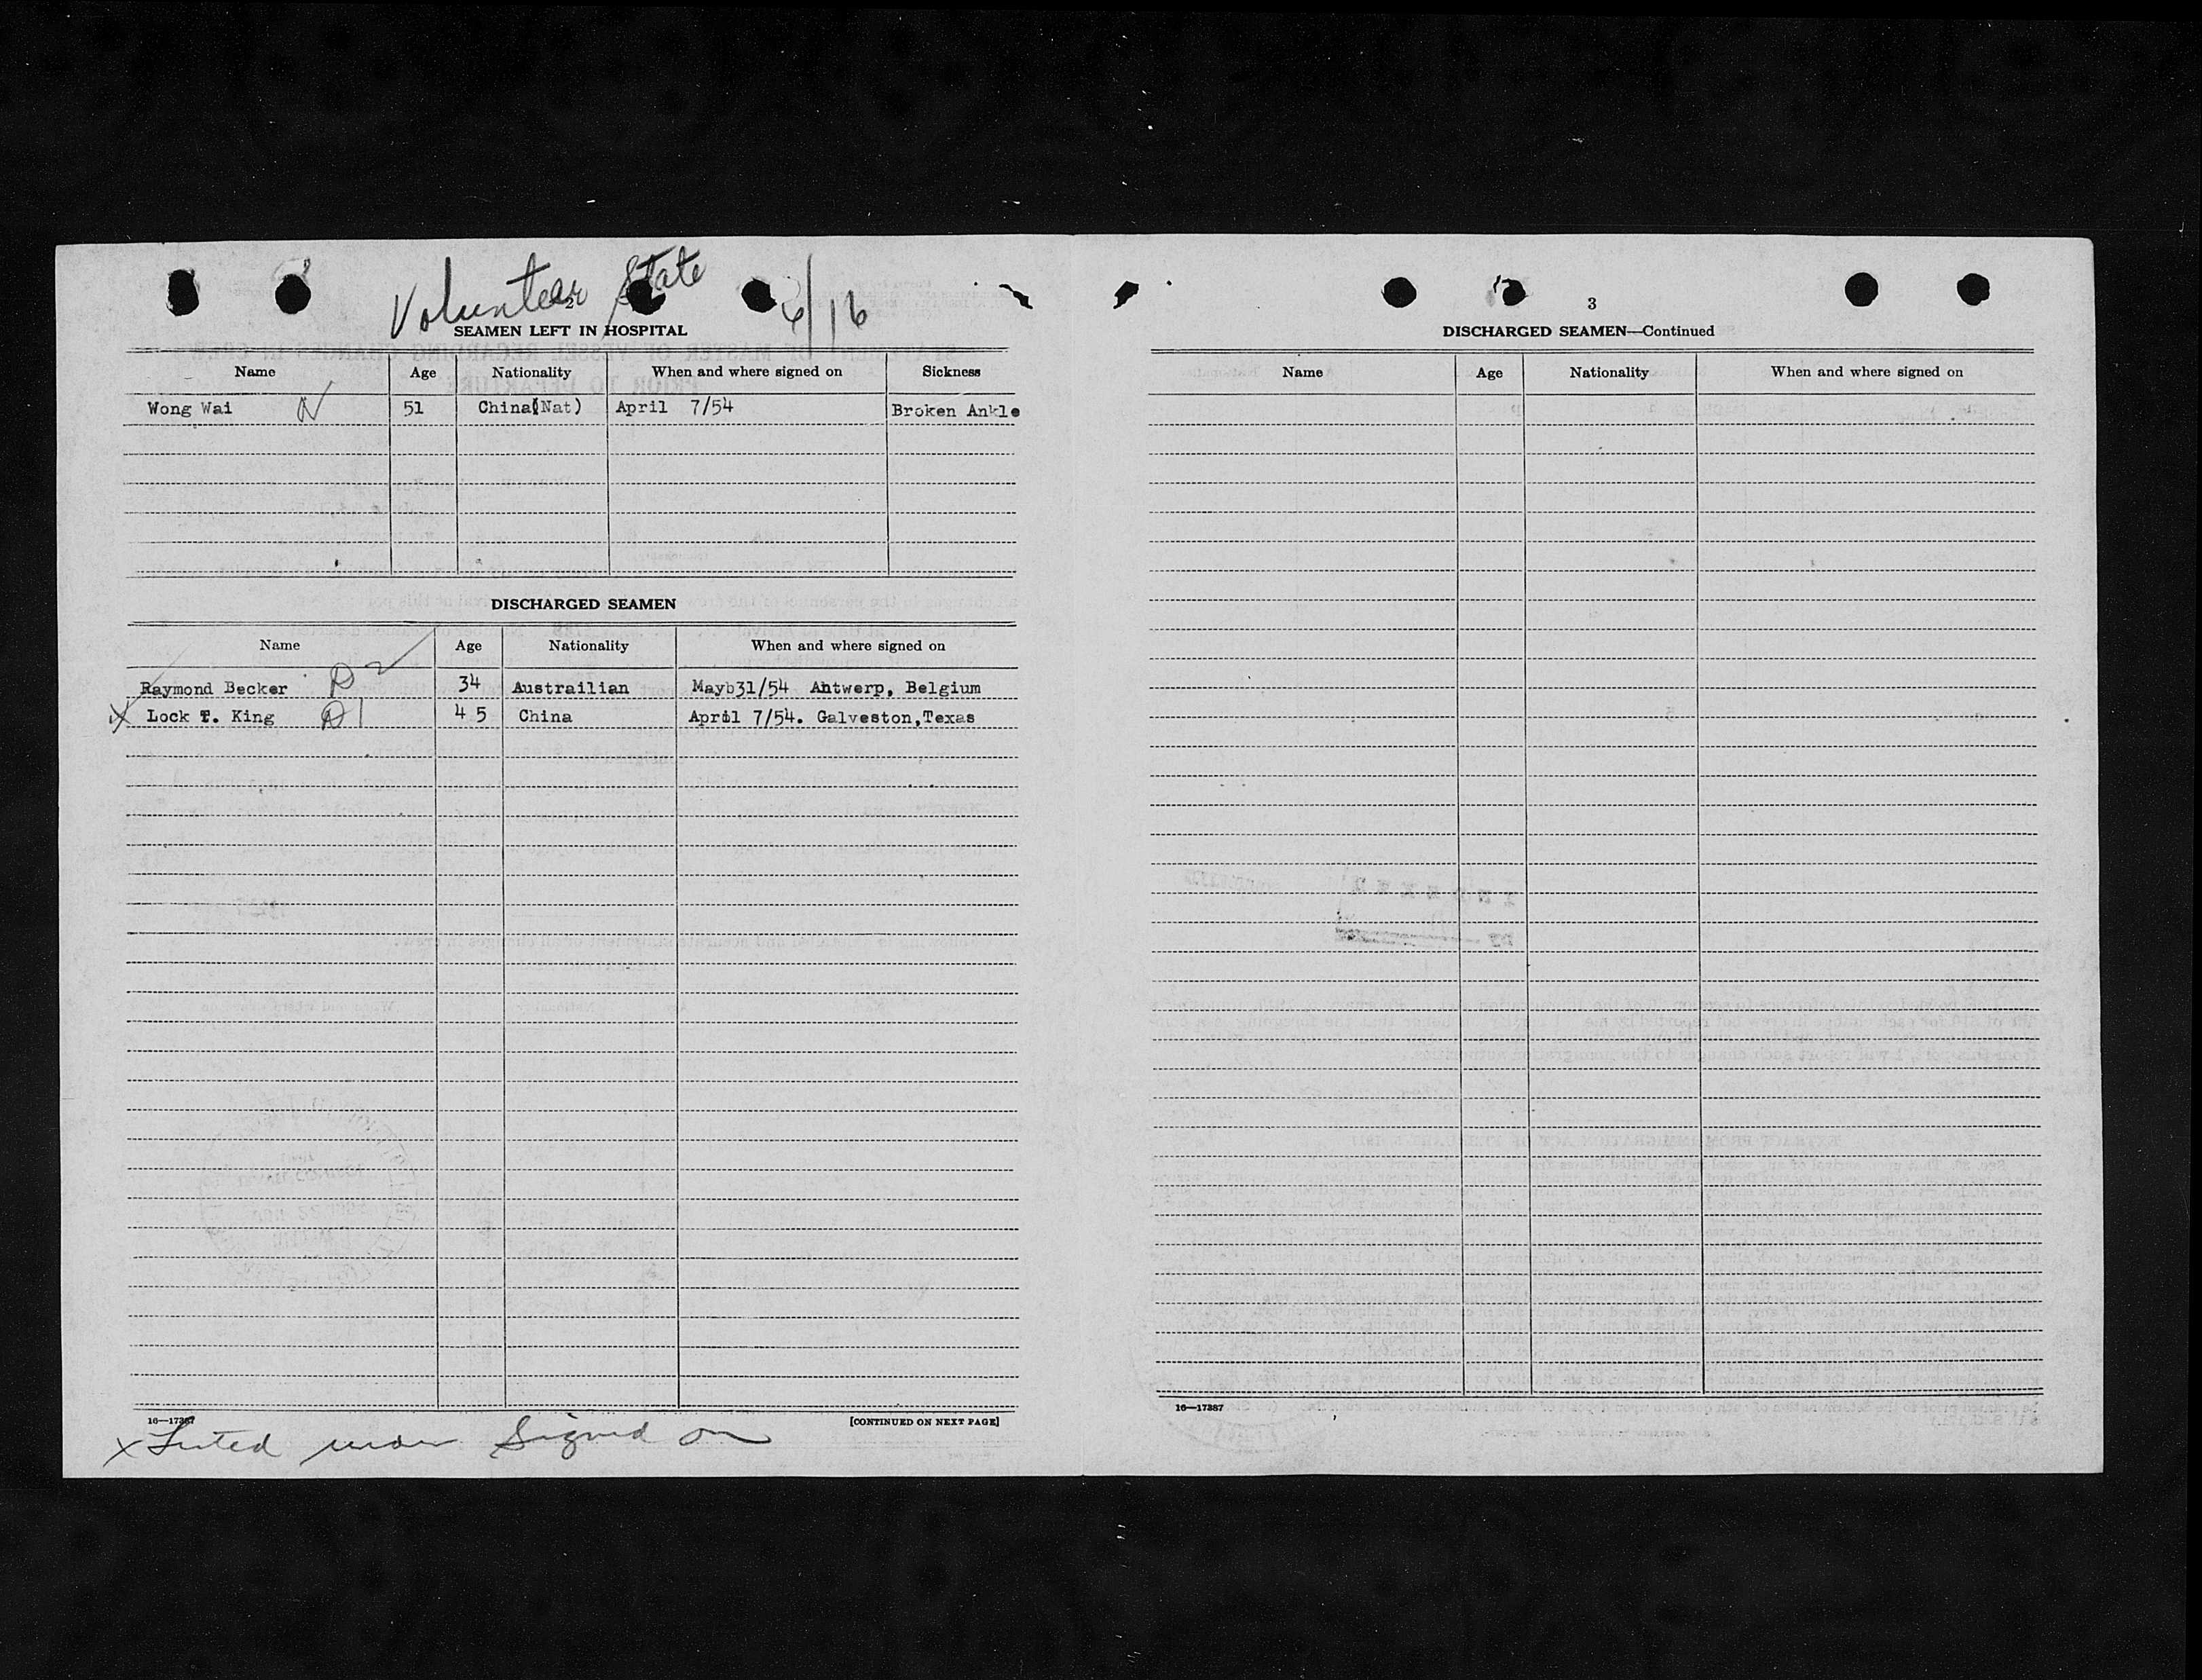 Voluntear State 6/16
2
SEAMEN LEFT IN HOSPITAL
Name Age Nationality When and where signed on Sickness
Wong Wai N 51 China(Nat) April 7/54 Broken Ankle
DISCHARGED SEAMEN
Name Age Nationality When and where signed on
Raymond Becker D2 34 Austrailian Mayb31/54 Antwerp, Belgium
x Lock T. King D1 45 China April 7/54. Galveston,Texas
16—17387 [CONTINUED ON NEXT PAGE]
x Listed under Signed on
3
DISCHARGED SEAMEN—Continued
Name Age Nationality When and where signed on
16—17387